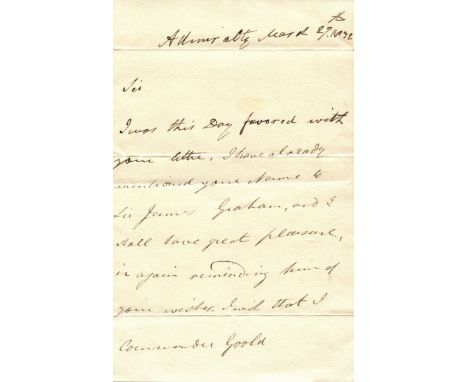 Admiralty March 27th 1832
Sir
I was this Day favored with
your letter, I have already
mentioned your Name to
Sir James Graham, and I
shall have great pleasure,
in again reminding him of
your wishes. I wish that I
Commander Goold